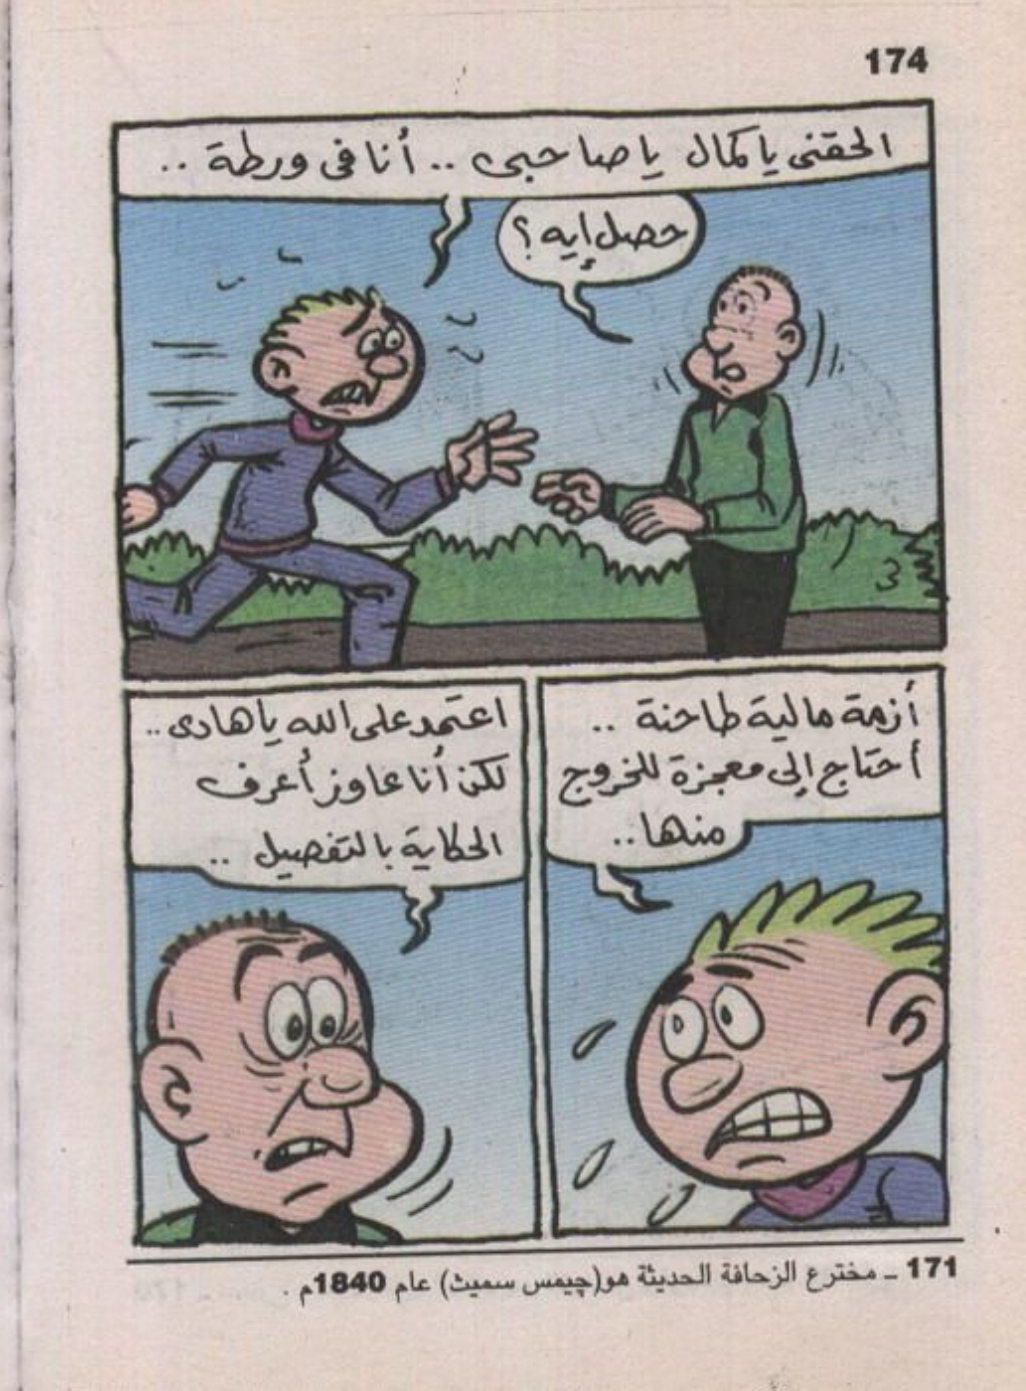 174
الحقنى يا كمال يا صاحبى .. أنا فى ورطة ..
حصل إيه ؟
أزمة مالية طاحنة ..
أحتاج إلى معجزة للخروج
منها ..
اعتمد على الله يا هادى ..
لكن أنا عاوز أعرف
الحكاية بالتفصيل ..
171 ـ مخترع الزحافة الحديثة هو(چيمس سميث) عام 1840م .